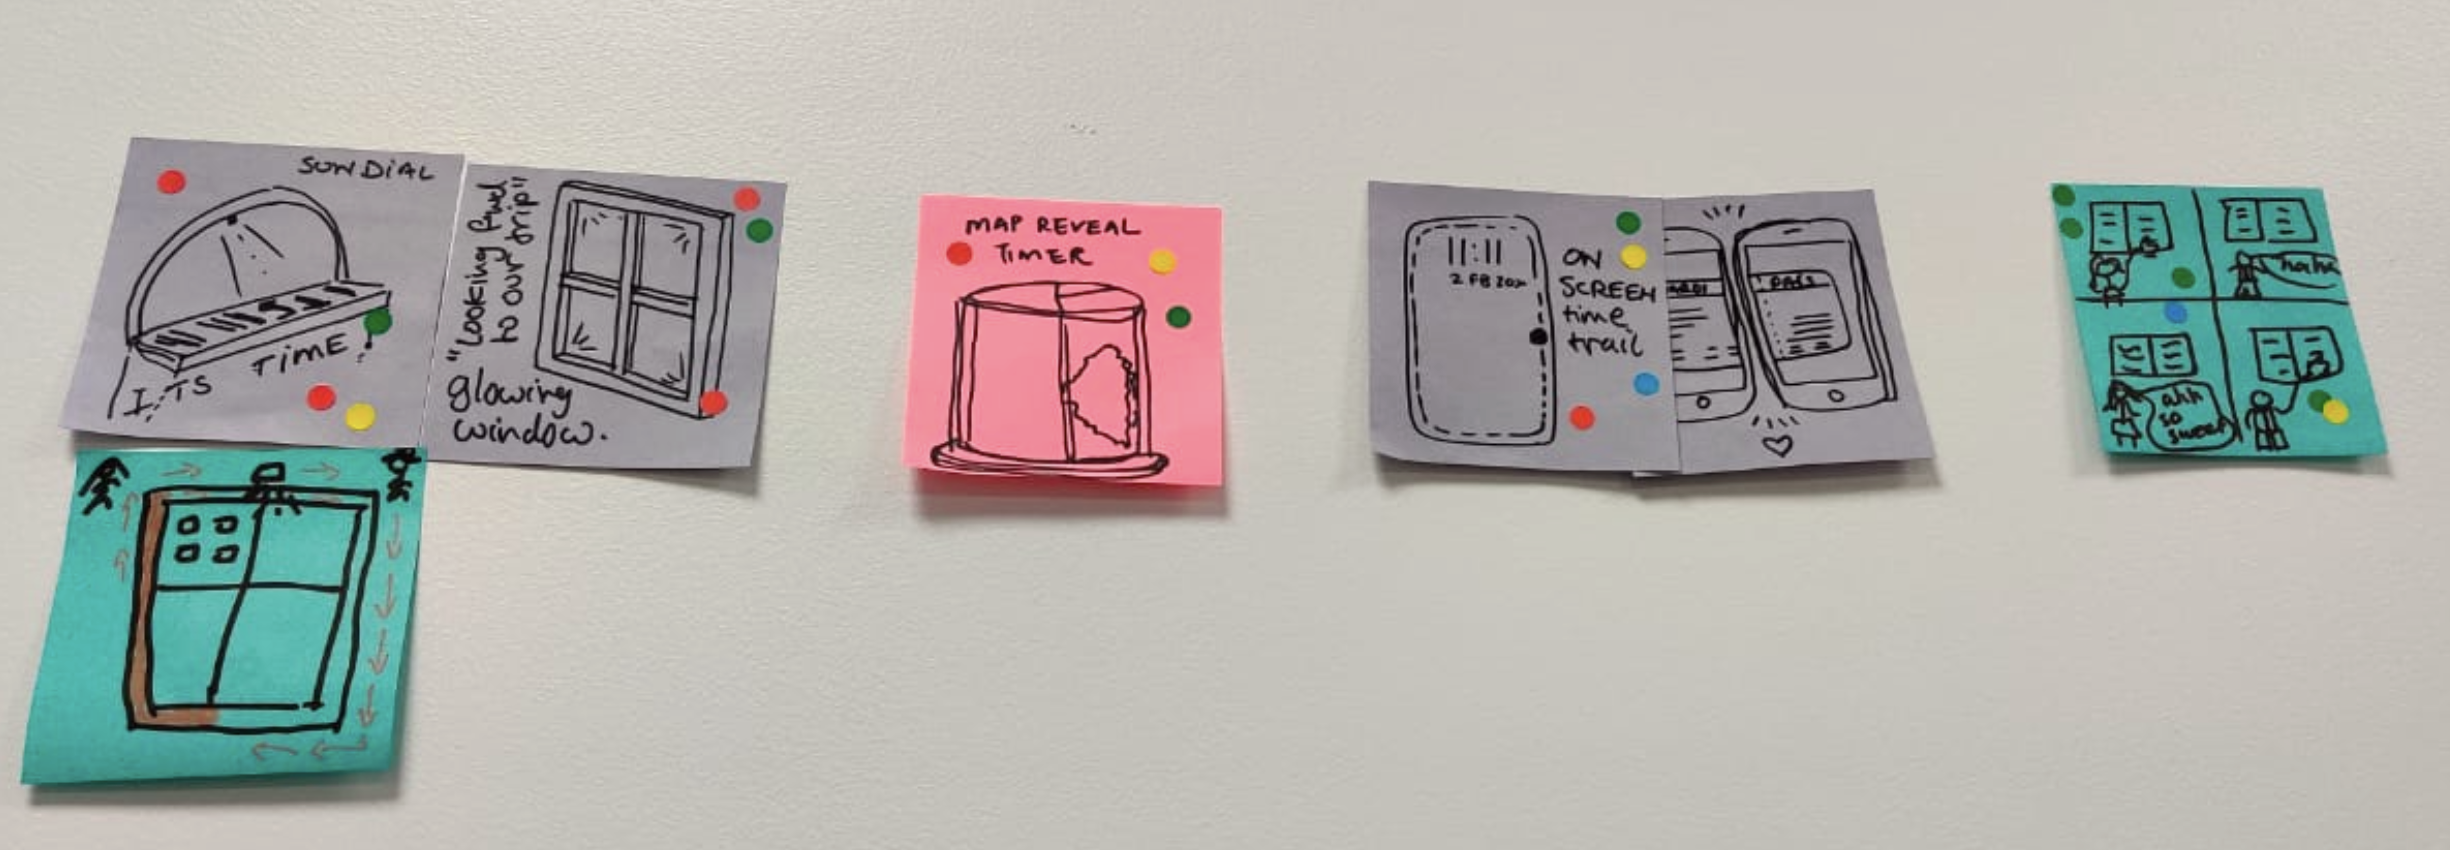 SUNDIAL
ITS TIME!
"Looking fwd
to our trip"
glowing
window.
MAP REVEAL
TIMER
11:11
2 FB
ON
SCREEN
time
trail
PASS
haha
ahh
so
sweet